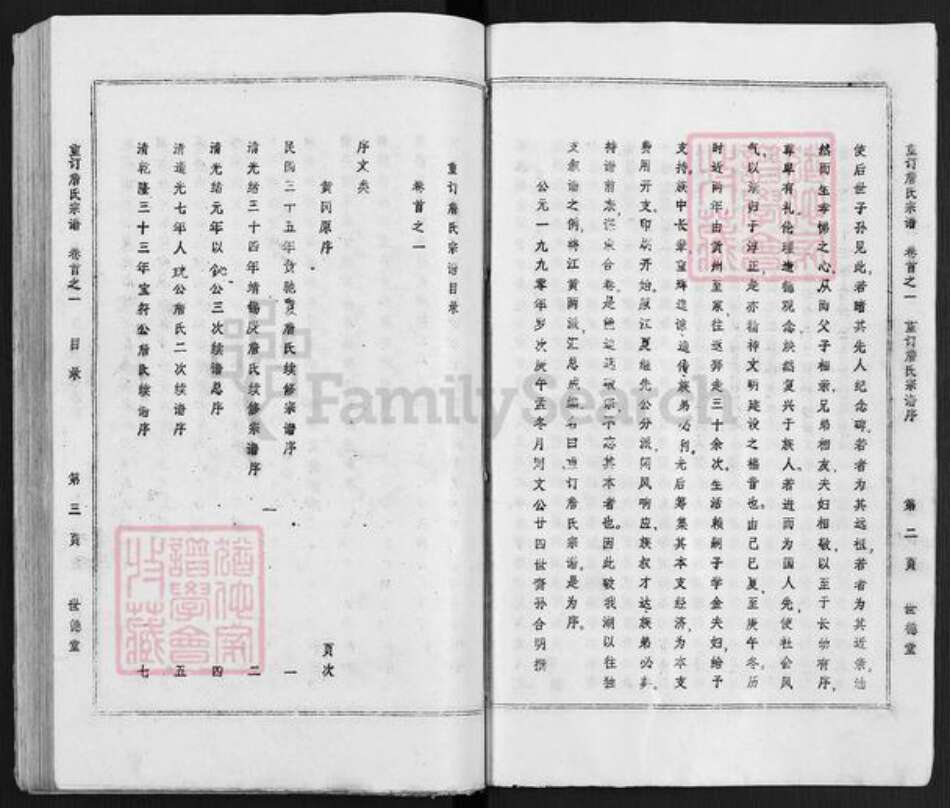 重订詹氏宗谱 卷首之一 重订詹氏宗谱序 第二頁 世德堂
使后世子孙见此，若睹其先人纪念碑。若者为其远祖，若者为其近亲，油
然而生孝悌之心，从而父子相亲，兄弟相友，夫妇相敬，以至于长幼有序，
尊卑有礼，伦理道德观念，焕然复兴于族人。若进而为国人先，使社会风
气以亲归于淳正，是亦精神文明建设之福音也。由己巳夏至庚午冬，历
时近两年，由黄州至家，往返奔走三十余次，生活赖嗣子学金夫妇，给予
支持。族中长辈，重辉道谅，道传族弟必利。先后筹集其本支经济，为本支
费用开支。印刷开始，原江夏继先公分派，闻风响应，族叔才达，族弟必
持谱前来，
支叙谱之例，将江黄两派，汇总成编，名曰重订詹氏宗谱。是为序。
公元一九九零年岁次庚午孟冬月 文公廿四世裔孙合明撰
重订詹氏宗谱目录
卷首之一
序文类 頁次
黄冈原序
民国三十五年 詹氏续修宗谱序 一
清光绪三十四年靖锡 詹氏续修宗谱序 二
清光绪元年以 公三次续谱总序 四
清道光七年人 公詹氏二次续谱序 五
清乾隆三十三年宝轩公詹氏续谱序 七
重订詹氏宗谱 卷首之一 目录 第三頁 世德堂
FamilySearch